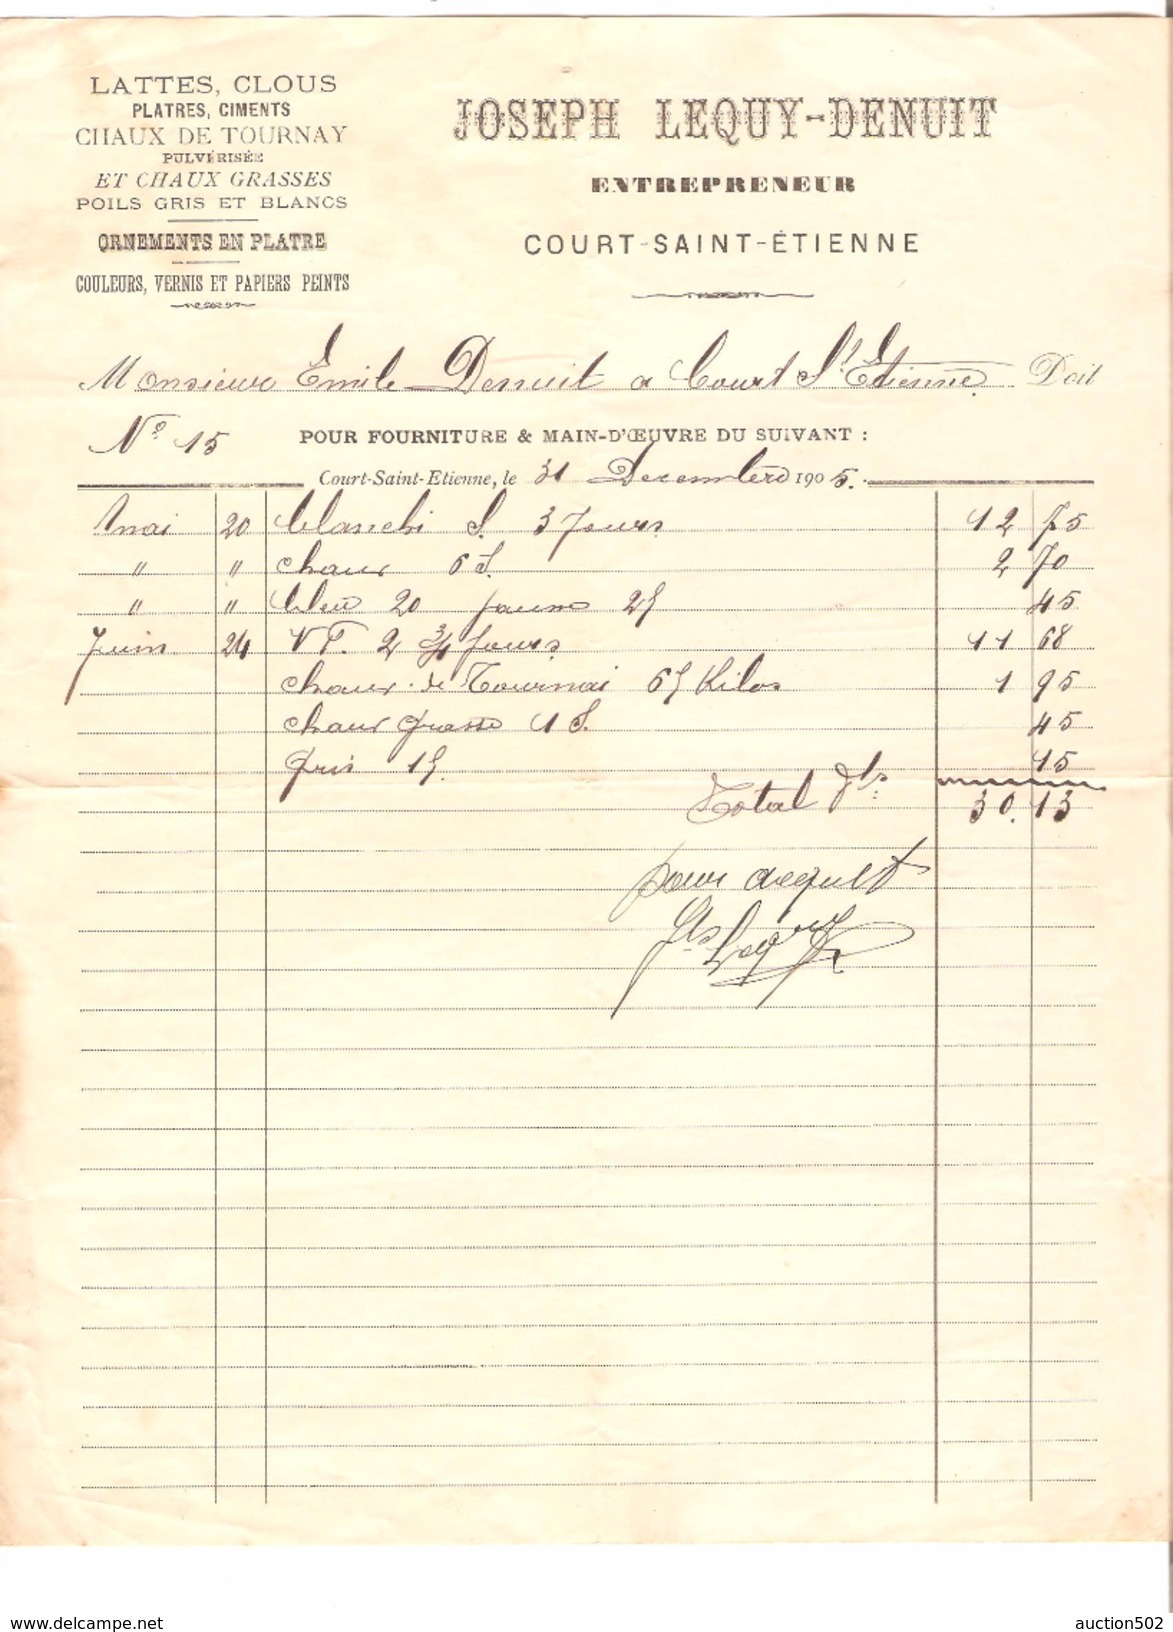 LATTES, CLOUS
PLATRES, CIMENTS
CHAUX DE TOURNAY
PULVÉRISÉE
ET CHAUX GRASSES
POILS GRIS ET BLANCS
ORNEMENTS EN PLATRE
COULEURS, VERNIS ET PAPIERS PEINTS
JOSEPH LEQUY-DENUIT
ENTREPRENEUR
COURT-SAINT-ÉTIENNE
Monsieur Emile Denuit a Court St Etienne Doit
No 15 POUR FOURNITURE & MAIN-D'ŒUVRE DU SUIVANT :
Court-Saint-Etienne, le 31 Decembre 1905.
Mai 20 blanchi S. 3 Jours 12 75
" " chaux 6 S. 2 70
" " bleu 20 jaune 25 45
Juin 24 V T. 2 3/4 Jours 11 68
chaux de Tournai 65 Kilos 1 95
chaux grasse 1 S. 45
gris 15. 15
Total frs: 30.13
pour acquit
Jh Lequy
www.delcampe.net
auction502